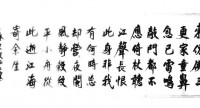 來彷彿三
更家童鼻
息已雷鳴
敲門都不
應倚杖聽
江聲長恨
此身非我
有何時忘
却營夜闌
風靜縠紋
平小舟從
此逝江海
寄余生